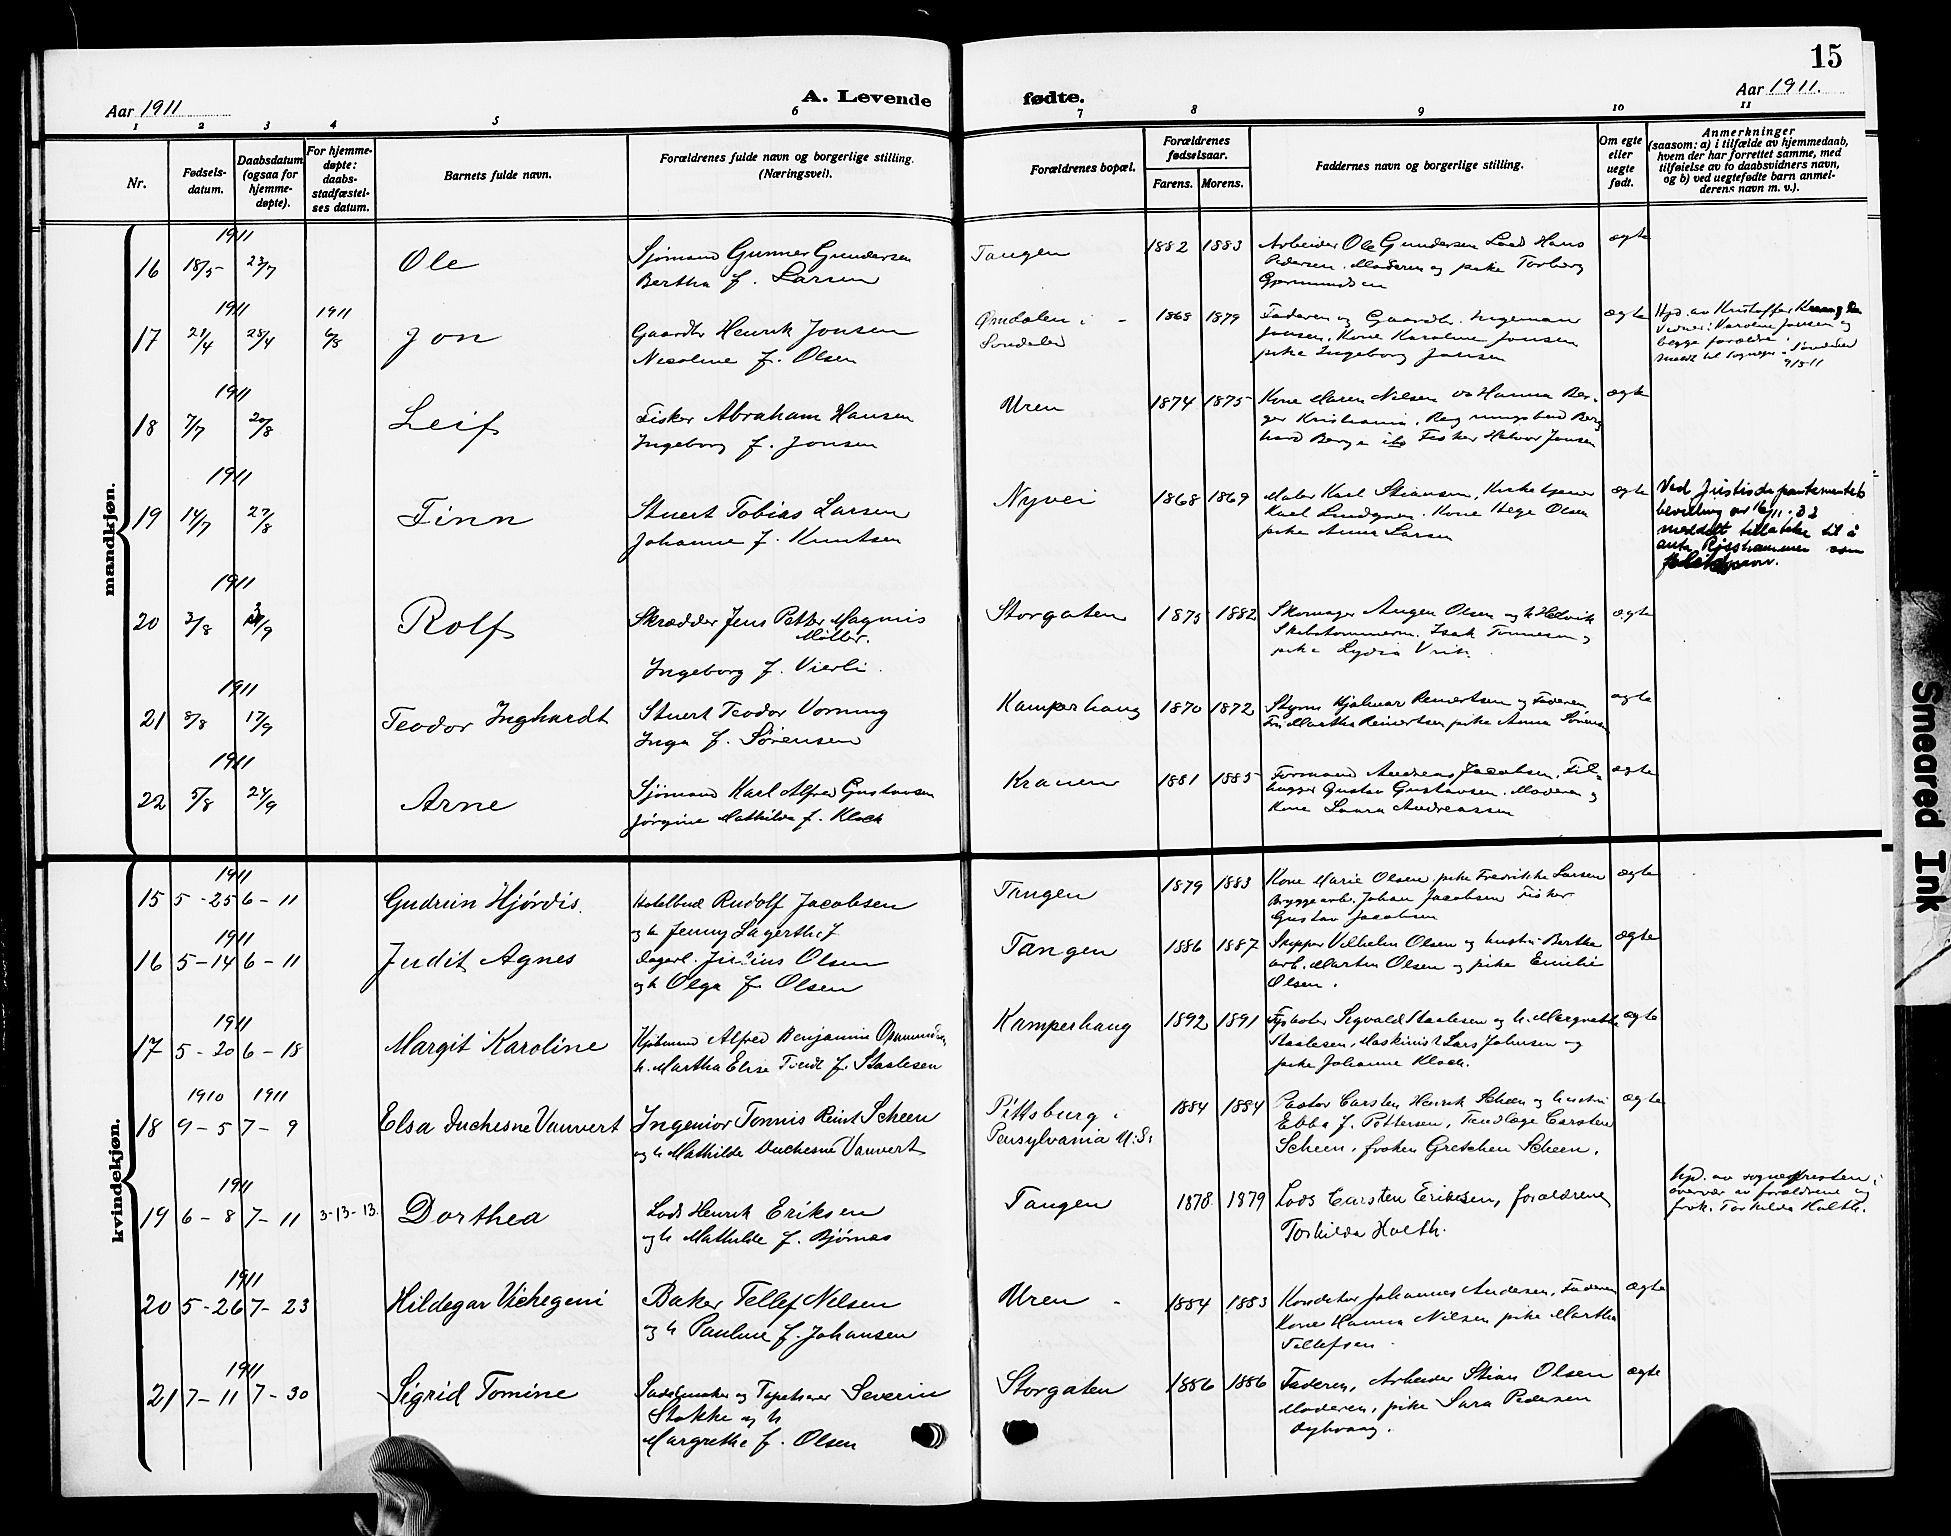 15
Aar 1911
A. Levende
fødte.
Aar 1911.
1 2 3 4 5 6 7 8 9 10 11
Nr.
Fødsels-
datum.
Daabsdatum
(ogsaa for
hjemme-
døpte).
For hjemme-
døpte:
daabs-
stadfæstel-
ses datum.
Barnets fulde navn.
Forældrenes fulde navn og borgerlige stilling.
(Næringsvei).
Forældrenes bopæl.
Forældrenes
fødselsaar.
Farens. Morens.
Faddernes navn og borgerlige stilling.
Om egte
eller
uegte
født.
Anmerkninger
(saasom: a) i tilfælde av hjemmedaab,
hvem der har forrettet samme, med
tilføielse av to daabsvidners navn,
og b) ved uegtefødte barn anmel-
derens navn m. v.).
mandkjøn.
1911
16 18/5 23/7 Ole
Sjømand Gunner Gundersen
Bertha f. Larsen
Tangen
1882 1883
Arbeider Ole Gundersen Lods Hans
Pedersen. Moderen og pike Torborg
Gjermundsen
ægte
1911 1911
17 21/4 25/4 6/8 Jon
Gaardbr Henrik Jonsen
Nicoline f. Olsen
Ømdalen i
Søndeled
1868 1879
Faderen og Gaardbr. Ingemann
Jonsen, Kone Karoline Jonsen
pike Ingeborg Jonsen
ægte
Hjd. av Kristoffer
Vidner: Karoline Jonsen og
begge forældre.
meldt til sognepr. i Søndeled
1911
18 7/7 20/8 Leif
Fisker Abraham Hansen
Ingeborg f. Jonsen
Uren
1874 1875
Kone Maren Nilsen og Hanna Ber-
ger Kristiania.
Fisker Halvor Jonsen
ægte
1911
19 14/7 27/8 Finn
Stuert Tobias Larsen
Johanne f. Knutsen
Nyvei
1868 1869
Maler Karl Stiansen, Kirketjener
Karl Lindgren. Kone Hege Olsen
pike Anna Larsen
ægte
Ved Justisdepartementets
bevilling av 16/11-33
meddelt tillatelse til å
anta Risshammer som
slektsnavn.
1911
20 2/8 /9 Rolf
Skrædder Jens Petter Magnus
Miller.
Ingeborg f. Vierli.
Storgaten
1875 1882
Skomager Augen Olsen og h Helvik
Skibstømmerm. Isak Tønnesen og
pike Lydia
ægte
1911
21 8/8 17/9 Teodor Inghardt
Stuert Teodor Vorning
Inga f. Sørensen
Kamperhaug
1870 1872
Styrm Hjalmar Reinertsen og Faderen,
Fru Martha Reinertsen pike Anna Sørensen
ægte
1911
22 5/8 24/9 Arne
Sjømand Karl Alfred Gustavsen
Jørgine Mathilde f. Kloch
Kranen
1881 1885
Formand Andreas Jacobsen, Fil-
hugger Gustav Gustavsen. Moderen og
Kone Laura Andreassen
ægte
kvindekjøn.
1911
15 5-25 6-11 Gudrun Hjørdis.
Hotelbud Rudolf Jacobsen
og h Jenny Lagertha f
Tangen
1879 1883
Kone Marie Olsen. pike Fredrikke Larsen
Bryggearb. Johan Jacobsen Fisker
Gustav Jacobsen
ægte
1911
16 5-14 6-11 Judit Agnes
Dagarb. Julius Olsen
og h Olga f. Olsen
Tangen
1886 1887
Skipper Vilhelm Olsen og hustru Berthe
arb. Martin Olsen og pike Emilie
Olsen.
ægte
1911
17 5-20 6-18 Margit Karoline
Alfred Benjamin
h. Martha Elise f. Staalesen
Kamperhaug
1892 1891
Fyrbøter Sigvald Staalesen og h. Margrethe
Staalesen, Maskinist Lars Johnsen og
pike Johanne Kloch.
ægte
1910 1911
18 9-5 7-9 Elsa Duchesne Vauvert
Ingeniør Tønnis Reint Scheen
og h Mathilde Duchesne Vauvert
Pittsburg i
Pensylvania U.S.
1884 1884
Pastor Carsten Henrik Scheen og hustru
Ebba f. Pettersen, Tandlæge Carsten
Scheen, frøken Gretchen Scheen.
ægte
1911
19 6-8 7-11 3-13-13. Dorthea
Lods Henrik Eriksen
og h Mathilde f. Bjørnes
Tangen
1878 1879
Lods Carsten Eriksen, forældrene
Torhilda Holth.
Hjd. av sognepresten i
overvær av forældrene og
frøk. Torhilda Holth.
1911
20 5-26 7-23 Hildegar Vichegeni
Baker Tellef Nilsen
og h Pauline f. Johansen
Uren
1884 1883
Konditor Johannes Andersen, Faderen
Kone Hanna Nilsen pike Martha
Tellefsen.
ægte
1911
21 7-11 7-30 Sigrid Tomine
Sadelmaker og Tapetserer Severin
Stokke og h
Margrethe f. Olsen
Storgaten
1886 1886
Faderen, Arbeider Stian Olsen
Moderen, pike Sara Pedersen
Dybvaag.
ægte
Smeared Ink